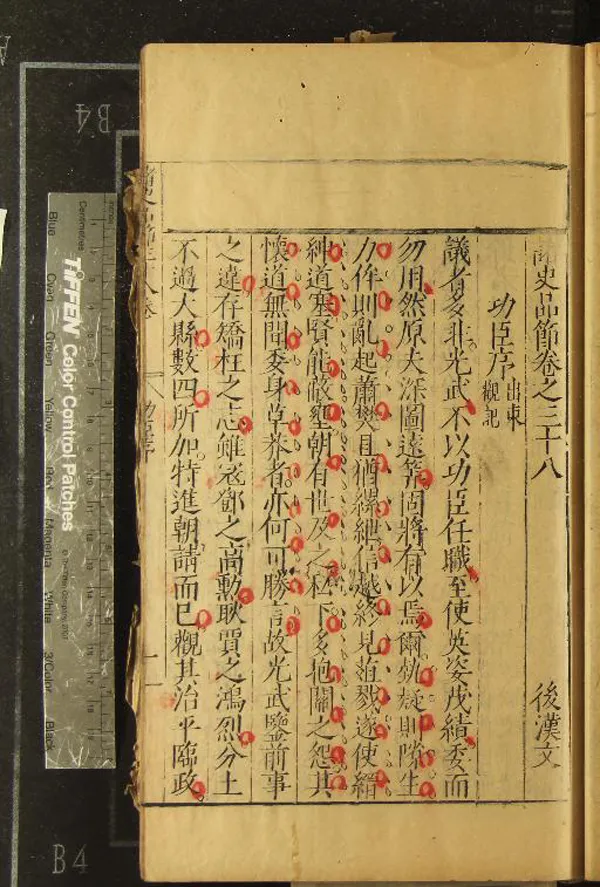 諸史品節卷之三十八
後漢文
功臣序 出東觀記
議者多非光武不以功臣任職至使英姿茂績委而
勿用然原夫深圖遠筭固將有以焉爾埶疑則隙生
力侔則亂起蕭樊且猶縲紲信越終見葅戮遂使縉
紳道塞賢能蔽壅朝有世及之私下多抱關之怨其
懷道無聞委身草莽者亦何可勝言故光武鑒前事
之違存矯枉之志雖寇鄧之高勳耿賈之鴻烈分土
不過大縣數四所加特進朝請而已觀其治平臨政
功臣序
B4
B4
A
Centimetres
TIFFEN Color Control Patches
Blue
Cyan
Green
Yellow
Red
Magenta
White
3/Color
Black